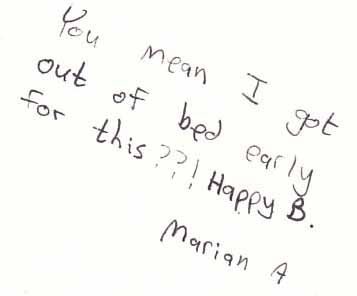 You mean I got
out of bed early
for this??! Happy B.
Marian A